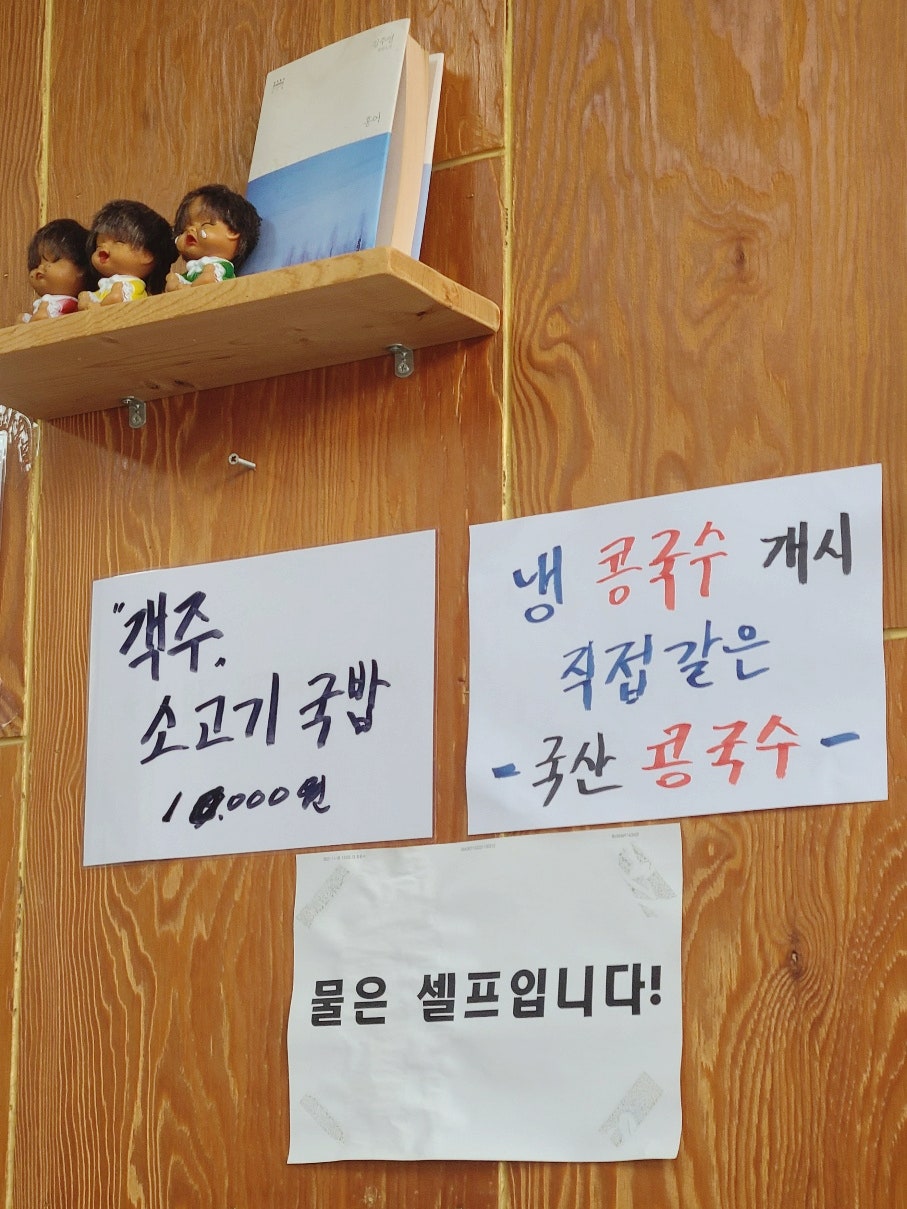 홍어
"객주.
소고기 국밥
10.000원
냉 콩국수 개시
직접 같은
- 국산 콩국수 -
물은 셀프입니다!